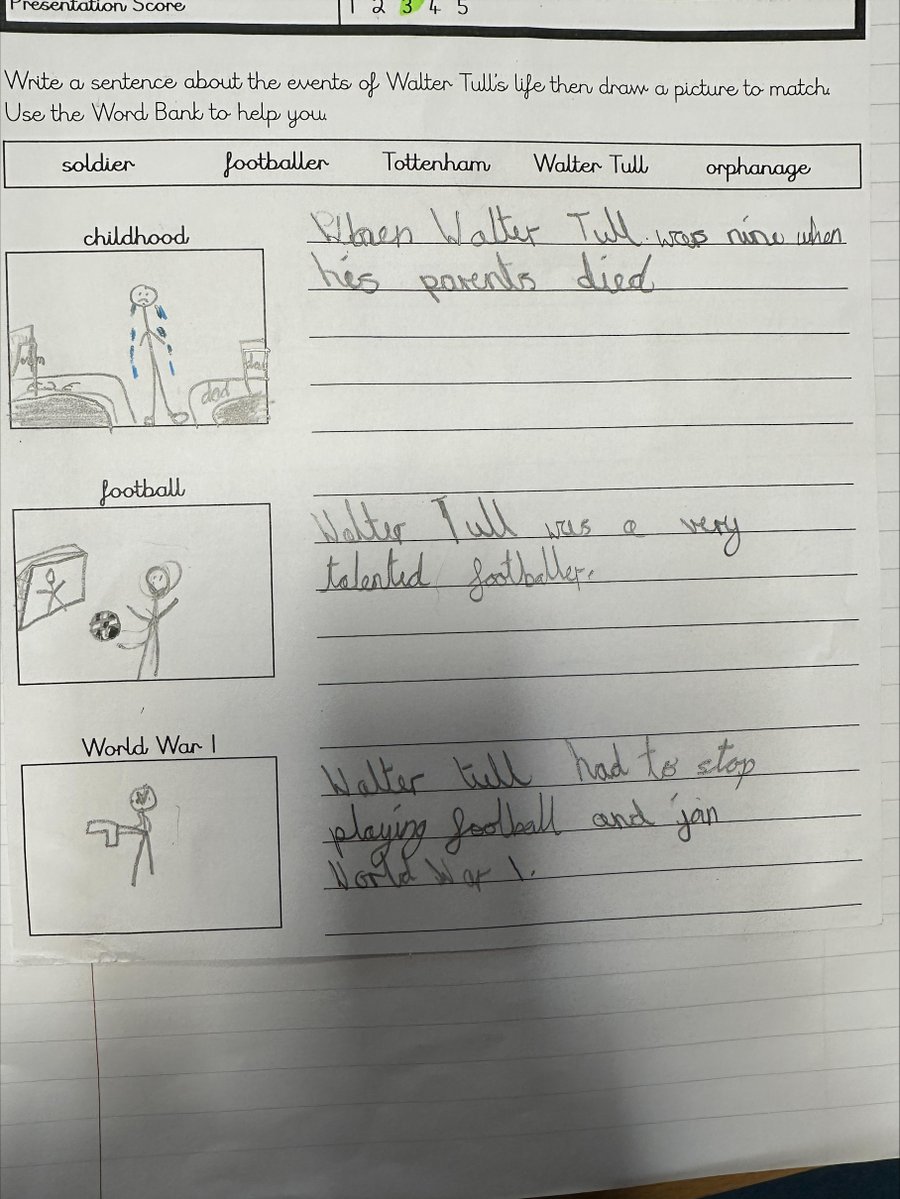 Presentation Score 1 2 3 4 5
Write a sentence about the events of Walter Tull's life then draw a picture to match.
Use the Word Bank to help you.
soldier footballer Tottenham Walter Tull orphanage
childhood
When Walter Tull was nine when
his parents died
dad
football
Walter Tull was a very
talented footballer.
World War 1
Walter tull had to stop
playing football and join
World War 1.